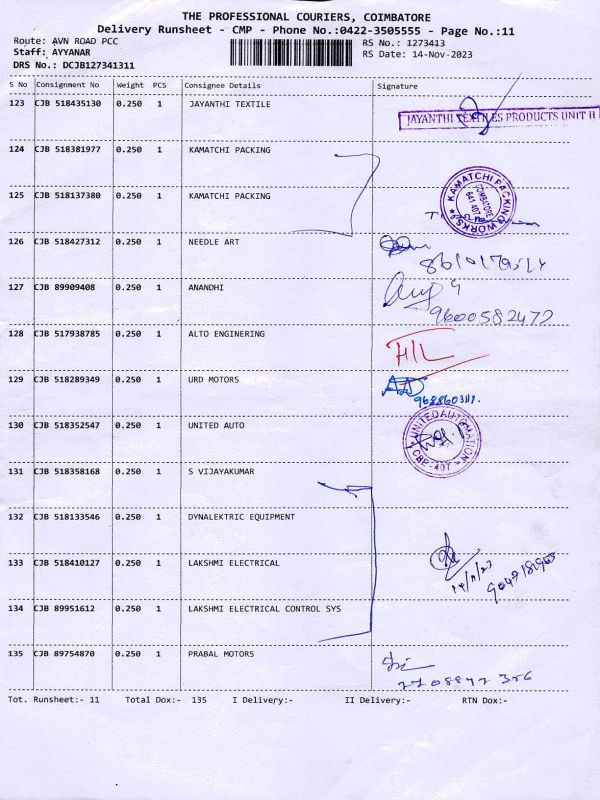 THE PROFESSIONAL COURIERS, COIMBATORE
Delivery Runsheet - CMP - Phone No.:0422-3505555 - Page No.:11
Route: AVN ROAD PCC RS No.: 1273413
Staff: AYYANAR RS Date: 14-Nov-2023
DRS No.: DCJB127341311
S No Consignment No Weight PCS Consignee Details Signature
123 CJB 518435130 0.250 1 JAYANTHI TEXTILE
JAYANTHI TEXTILES PRODUCTS UNIT II
124 CJB 518381977 0.250 1 KAMATCHI PACKING
125 CJB 518137380 0.250 1 KAMATCHI PACKING
KAMATCHI PACKING WORKS
COIMBATORE
641 407
126 CJB 518427312 0.250 1 NEEDLE ART
127 CJB 89909408 0.250 1 ANANDHI
9600582472
128 CJB 517938785 0.250 1 ALTO ENGINERING
H/L
129 CJB 518289349 0.250 1 URD MOTORS
130 CJB 518352547 0.250 1 UNITED AUTO
UNITED AUTOMATION
CBE-407
131 CJB 518358168 0.250 1 S VIJAYAKUMAR
132 CJB 518133546 0.250 1 DYNALEKTRIC EQUIPMENT
133 CJB 518410127 0.250 1 LAKSHMI ELECTRICAL
14/11/23
134 CJB 89951612 0.250 1 LAKSHMI ELECTRICAL CONTROL SYS
135 CJB 89754870 0.250 1 PRABAL MOTORS
Tot. Runsheet:- 11 Total Dox:- 135 I Delivery:- II Delivery:- RTN Dox:-